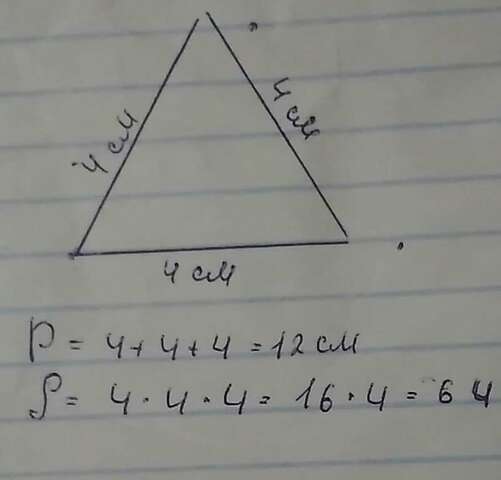 4 см
4 см
4 см
P = 4+4+4=12 см
S = 4·4·4= 16·4 = 64